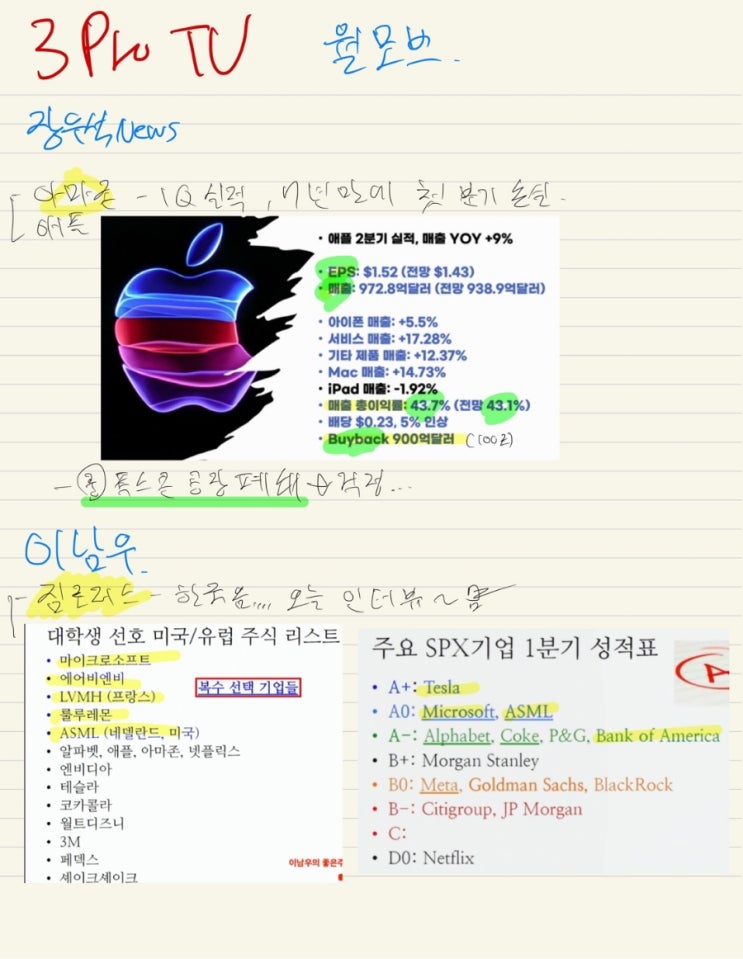 3 Pro TV 월모브.
장우석 News
아마존 - 1Q 실적, 7년만에 첫 분기 손실.
애플
• 애플 2분기 실적, 매출 YOY +9%
• EPS: $1.52 (전망 $1.43)
• 매출: 972.8억달러 (전망 938.9억달러)
• 아이폰 매출: +5.5%
• 서비스 매출: +17.28%
• 기타 제품 매출: +12.37%
• Mac 매출: +14.73%
• iPad 매출: -1.92%
• 매출 총이익률: 43.7% (전망 43.1%)
• 배당 $0.23, 5% 인상
• Buyback 900억달러
- 중 폭스콘 공장 폐쇄 → 걱정...
이남우.
짐로저스 - 한국음.... 오늘 인터뷰~
대학생 선호 미국/유럽 주식 리스트
• 마이크로소프트
• 에어비엔비
• LVMH (프랑스)
복수 선택 기업들
• 룰루레몬
• ASML (네델란드, 미국)
• 알파벳, 애플, 아마존, 넷플릭스
• 엔비디아
• 테슬라
• 코카콜라
• 월트디즈니
• 3M
• 페덱스
• 셰이크셰이크
이남우의 좋은주
주요 SPX기업 1분기 성적표
A
• A+: Tesla
• A0: Microsoft, ASML
• A-: Alphabet, Coke, P&G, Bank of America
• B+: Morgan Stanley
• B0: Meta, Goldman Sachs, BlackRock
• B-: Citigroup, JP Morgan
• C:
• D0: Netflix